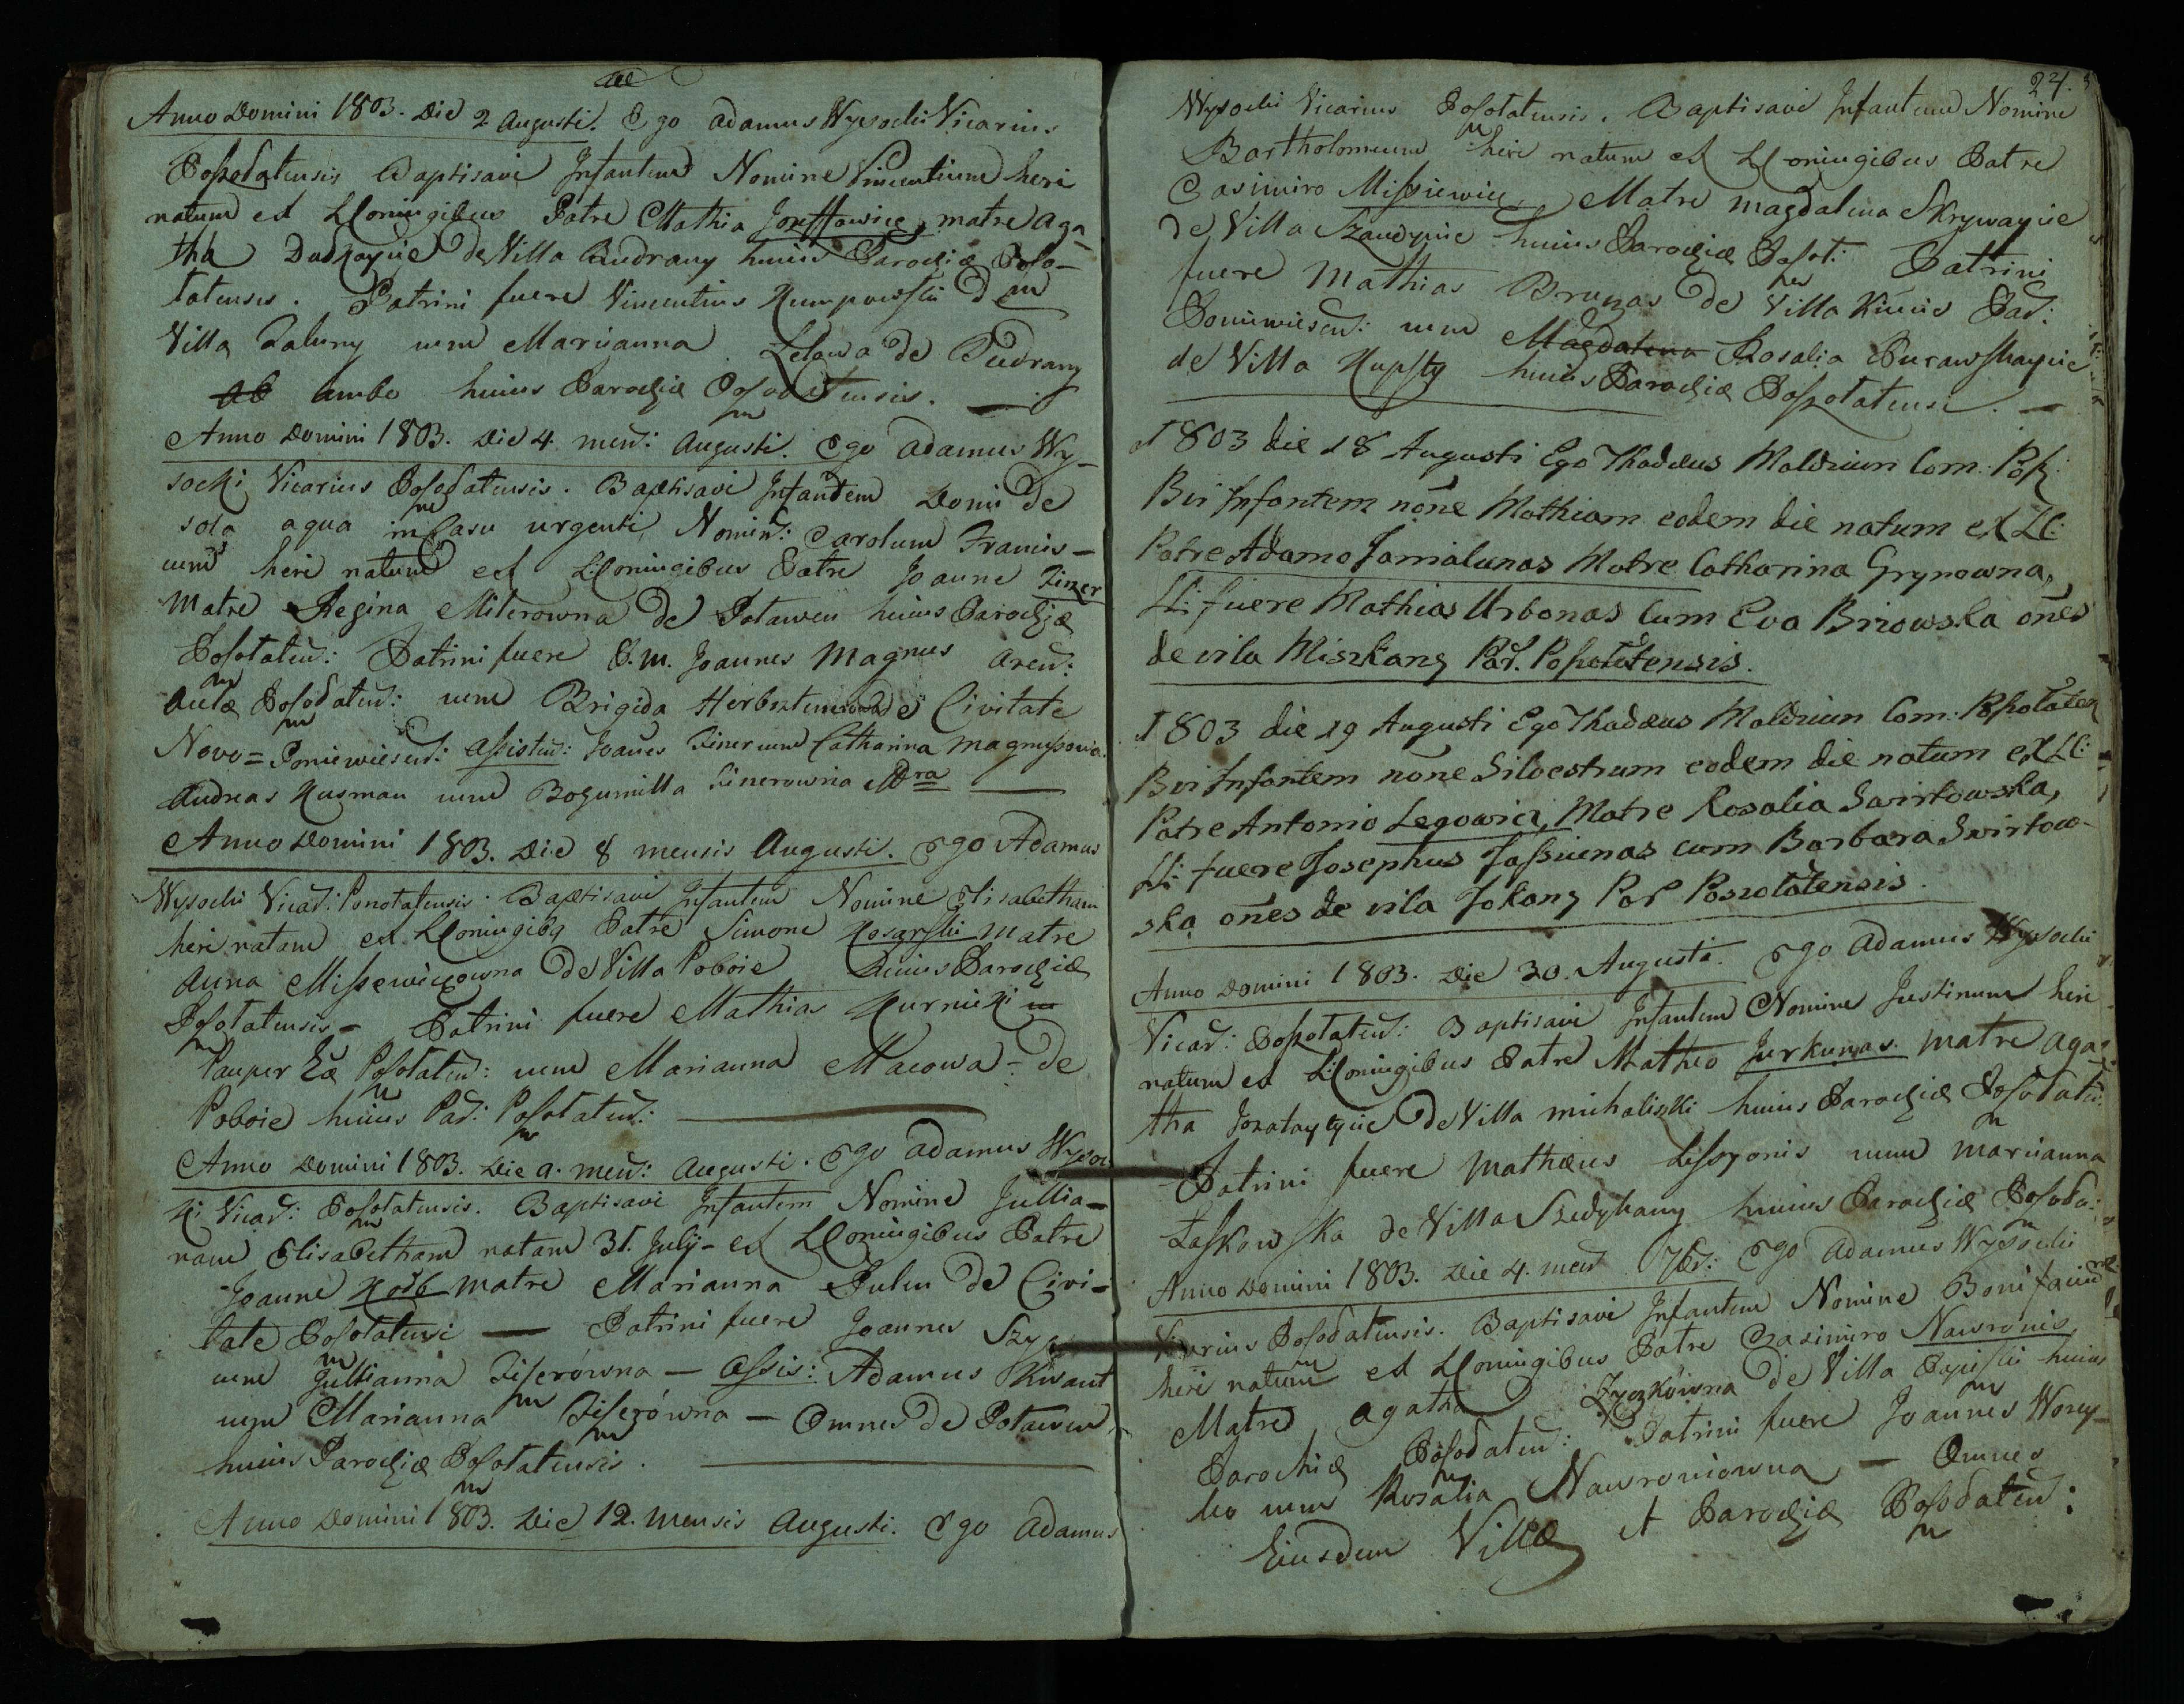 Anno Domini 1803. Die 2 Augusti. Ego Adamus Wysocki Vicarius
Posotatensis Baptisavi Infantem Nomine Vincentium heri
natum ex LConiugibus Patre Mathia Jozeffowicz, matre Aga-
tha Dudkaycie de Villa Budrany huius Parochiæ Poso-
tatensis. Patrini fuere Vincentius de
Villa Zaluny cum Marianna de Budrany
ambo huius Parochiæ Posotatensis.
Anno Domini 1803. Die 4. men: Augusti. Ego Adamus Wy-
socki Vicarius Posotatensis. Baptisavi Infantem Domi de
sola aqua in Casu urgenti, Nomin: Carolum Francis-
cum heri natum ex LConiugibus Patre Joanne Ziner
Matre Regina Milerowna de Potawen huius Parochiæ
Posotaten: Patrini fuere G. M. Joannes Magnus Aren:
Aulæ Posotaten: cum Brigida de Civitate
Novo = Poniewiesen: Assisten: Joanes Ziner cum Catharina
Andreas Kusman cum Bogumilla Zinerowna
Anno Domini 1803. Die 8 mensis Augusti. Ego Adamus
Wysocki Vicar: Ponotatensis. Baptisavi Infantem Nomine Elisabetham
heri natam ex LConiugibq Patre Simone Kosarski Matre
Anna Missewiczowna De Villa Poboie huius Parochiæ
Posotatensis - Patrini fuere Mathias Kurnicki
Pauper Posotaten: cum Marianna Macowa - de
Poboie huius Par: Posotaten:
Anno Domini 1803. Die 9. men: Augusti. Ego Adamus Wysoc
ki Vicar: Posotatensis. Baptisavi Infantem Nomine Jullia-
nam Elisabetham natam 31. July - ex LConiugibus Patre
Joanne Kolb matre Marianna de Civi-
tate Posotatensi — Patrini fuere Joannes
cum Jullianna Ziserowna — Assis: Adamus Kwant
cum Marianna Ziserówna — Omnes de Potawen
huius Parochiæ Posotatensis.
Anno Domini 1803. Die 12. mensis Augusti. Ego Adamus
24.
Wysocki Vicarius Posotatensis. Baptisavi Infantem Nomine
Bartholomeum heri natum ex LConiugibus Patre
Casimiro Missiewicz, Matre Magdalena Skrywaycie
de Villa Szaudynie huius Parochiæ Posot: Patrini
fuere Mathias Brunas de Villa Kiunis Par:
Poniwiesen: cum Magdalena Rosalia
de Villa Kupsty huius Parochiæ Posotatensi.
1803 die 18 Augusti Ego Thadæus Moldziun Com: Pos:
Bvi Infantem nōne Mathiam eodem die natum ex LC:
Patre Adamo Jamialunas Matre Catharina Grynowna,
LLi fuere Mathias Urbonas Cum Eva Brizowska ones
de vila Miszkany Par. Possotatensis.
1803 die 19 Augusti Ego Thadæus Moldziun Com: Possotaten
Bvi Infantem none Silvestrum eodem die natum ex LC:
Patre Antonio Legowicz, Matre Rosalia Swirtowska,
LLi fuere Josephus Jassiunas cum Barbara Swirtow-
ska ones de vila Jokany Par Poszotatensis.
Anno Domini 1803. Die 30. Augusti. Ego Adamus Wysocki
Vicar: Posotaten: Baptisavi Infantem Nomine Justinum heri
natum ex LConiugibus Patre Matheo Jurkunas. Matre Aga-
tha de Villa Michaliszki huius Parochiæ Posotaten:
Patrini fuere Mathæus cum Marianna
Laskowska de Villa Szedykany huius Parochiæ Posota:
Anno Domini 1803. Die 4. men 7br: Ego Adamus Wysocki
Vicarius Posotatensis. Baptisavi Infantem Nomine Bonifacium
heri natum ex LConiugibus Patre Casimiro Nawronis
Matre Agatha Zyczkowna de Villa huius
Parochiæ Posotaten: Patrini fuere Joannes
cum Rosalia Nawroniowna — Omnes
Eiusdem Villæ et Parochiæ Posotaten: